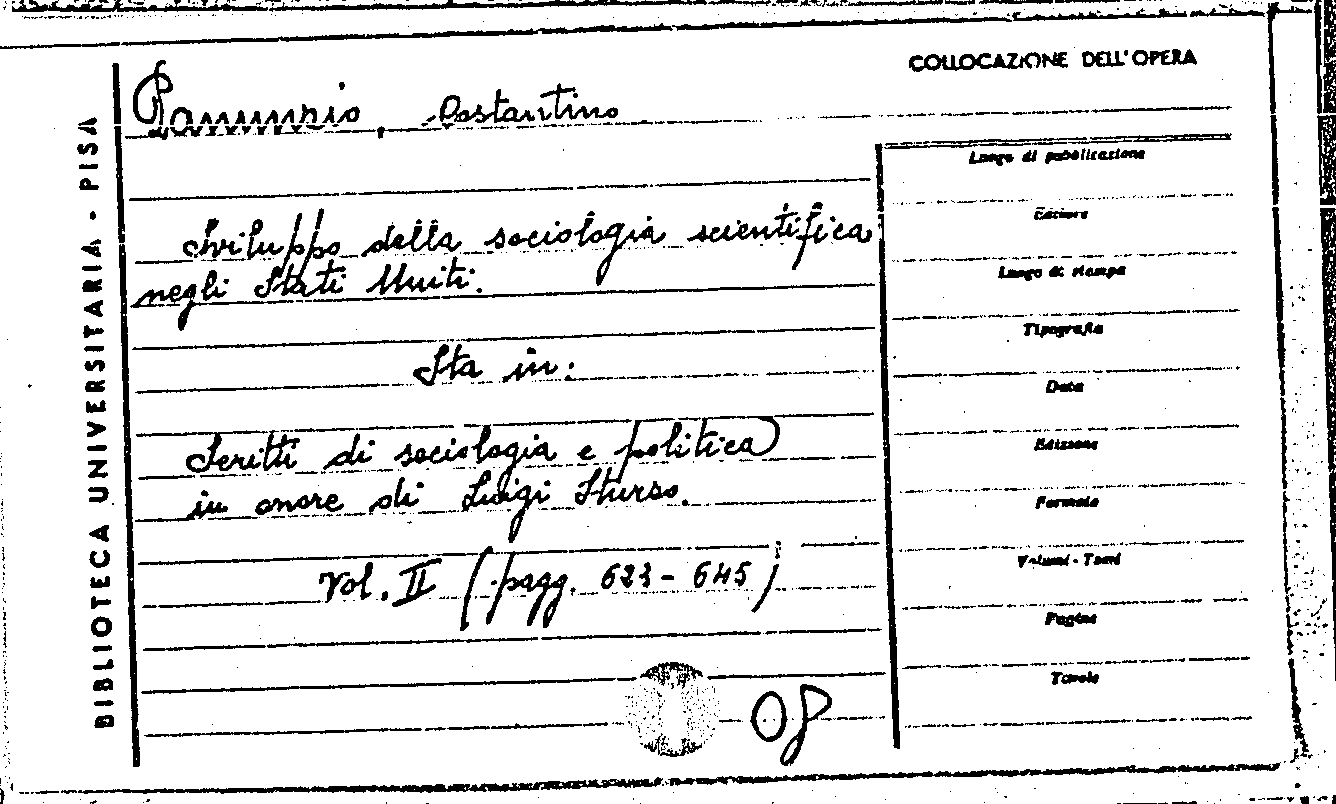 COLLOCAZIONE DELL'OPERA
Panunzio, Costantino
BIBLIOTECA UNIVERSITARIA - PISA
Sviluppo della sociologia scientifica
negli Stati Uniti.
Sta in:
Scritti di sociologia e politica
in onore di Luigi Sturzo.
Vol. II (pagg. 623-645)
Luogo di pubblicazione
Editore
Luogo di stampa
Tipografia
Data
Edizione
Formato
Volumi - Tomi
Pagine
Tavole